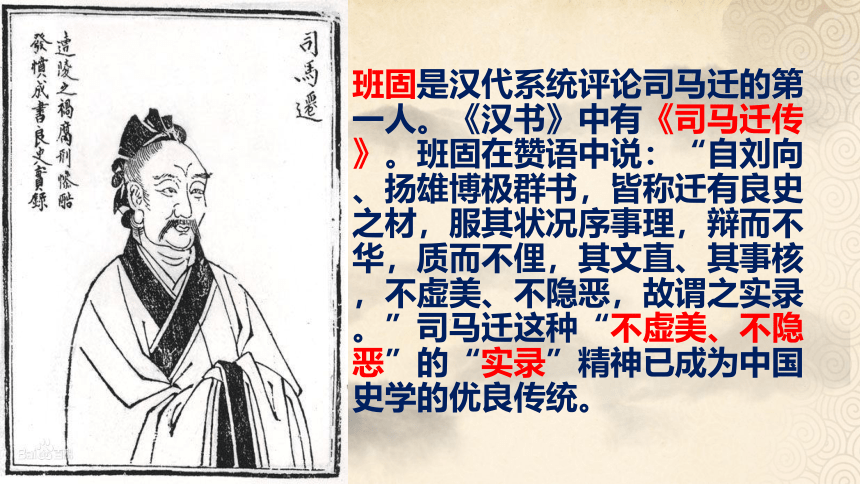 司馬遷
遭陵之禍腐刑慘酷
發憤成書良史實錄
班固是汉代系统评论司马迁的第
一人。《汉书》中有《司马迁传
》。班固在赞语中说：“自刘向
、扬雄博极群书，皆称迁有良史
之材，服其状况序事理，辩而不
华，质而不俚，其文直、其事核
，不虚美、不隐恶，故谓之实录
。”司马迁这种“不虚美、不隐
恶”的“实录”精神已成为中国
史学的优良传统。
Baidu百科